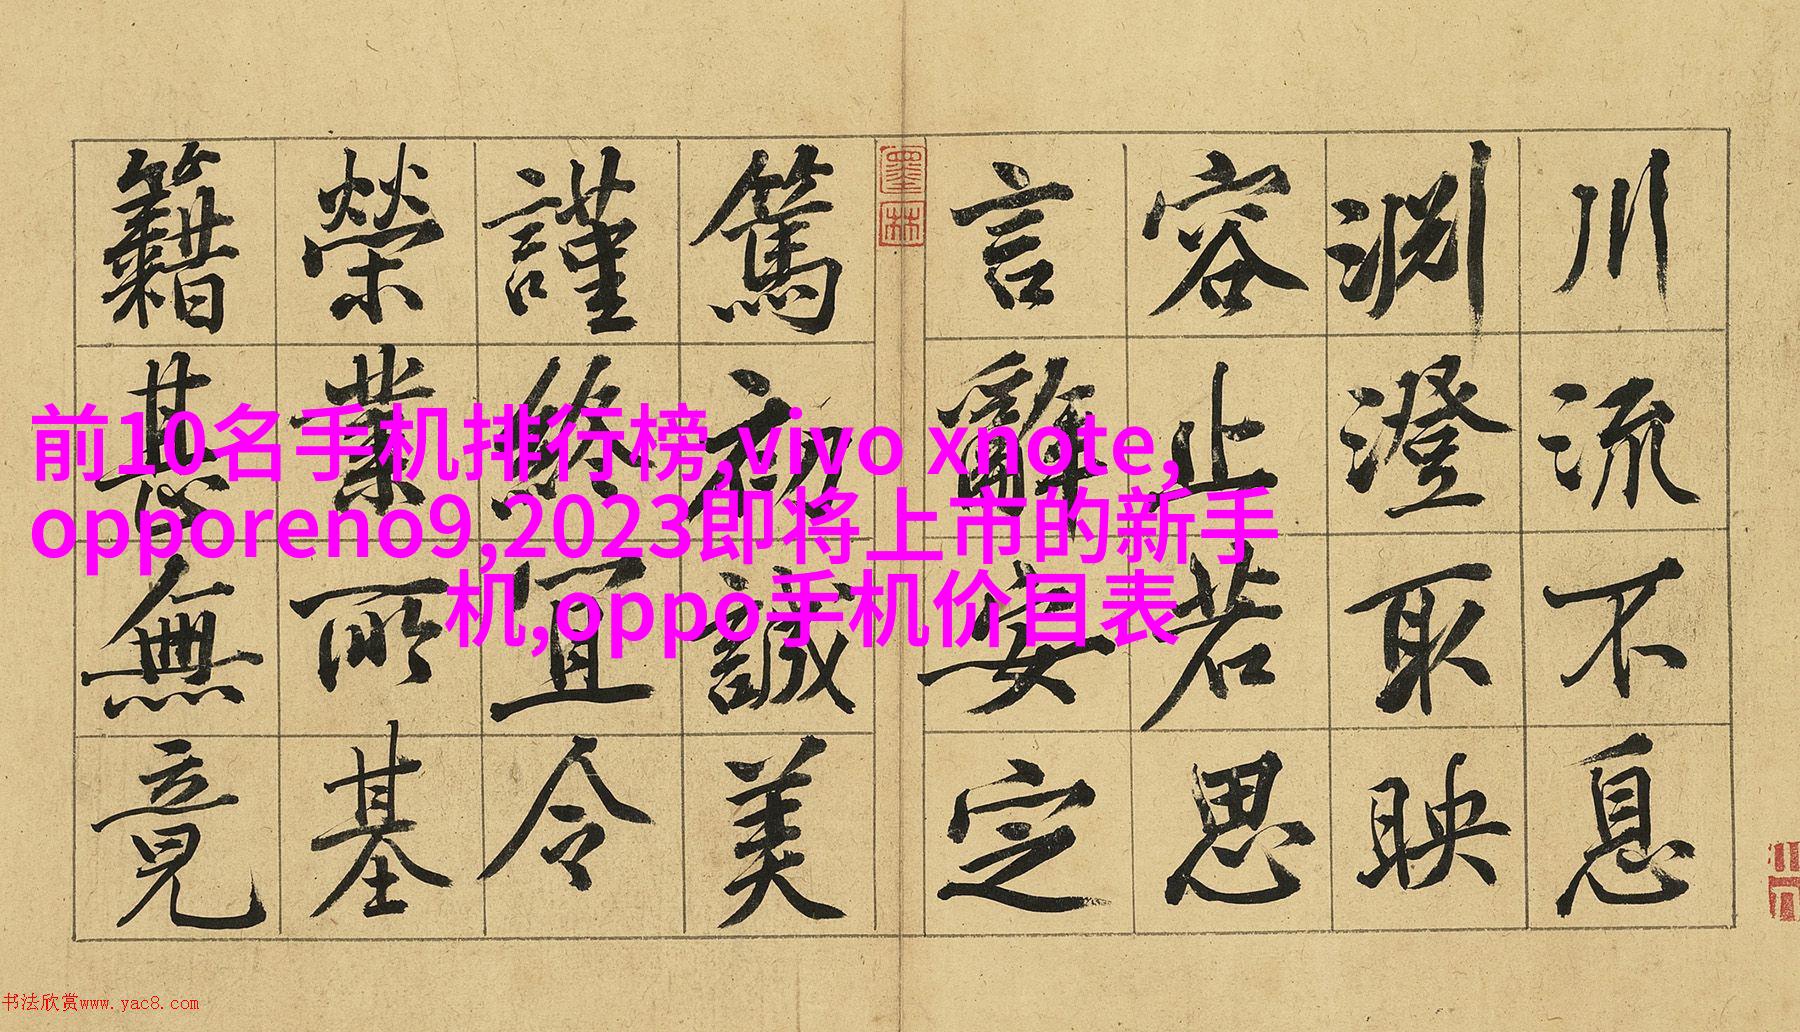 川流不息
淵澄取映
容止若思
言辭安定
墨林
篤初誠美
謹終宜令
榮業所基
籍甚無竟
前10名手机排行榜,vivo xnote,
opporeno9,2023即将上市的新手
机,oppo手机价目表
书法欣赏www.yac8.com